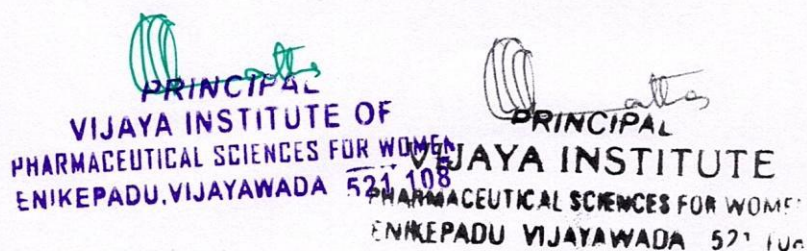 PRINCIPAL
VIJAYA INSTITUTE OF
PHARMACEUTICAL SCIENCES FOR WOMEN
ENIKEPADU, VIJAYAWADA 521 108
PRINCIPAL
VIJAYA INSTITUTE
PHARMACEUTICAL SCIENCES FOR WOME
ENIKEPADU VIJAYAWADA 521 108